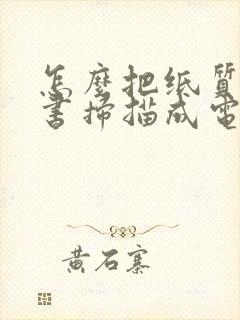 怎麼把纸質
書掃描成電
黄石寨